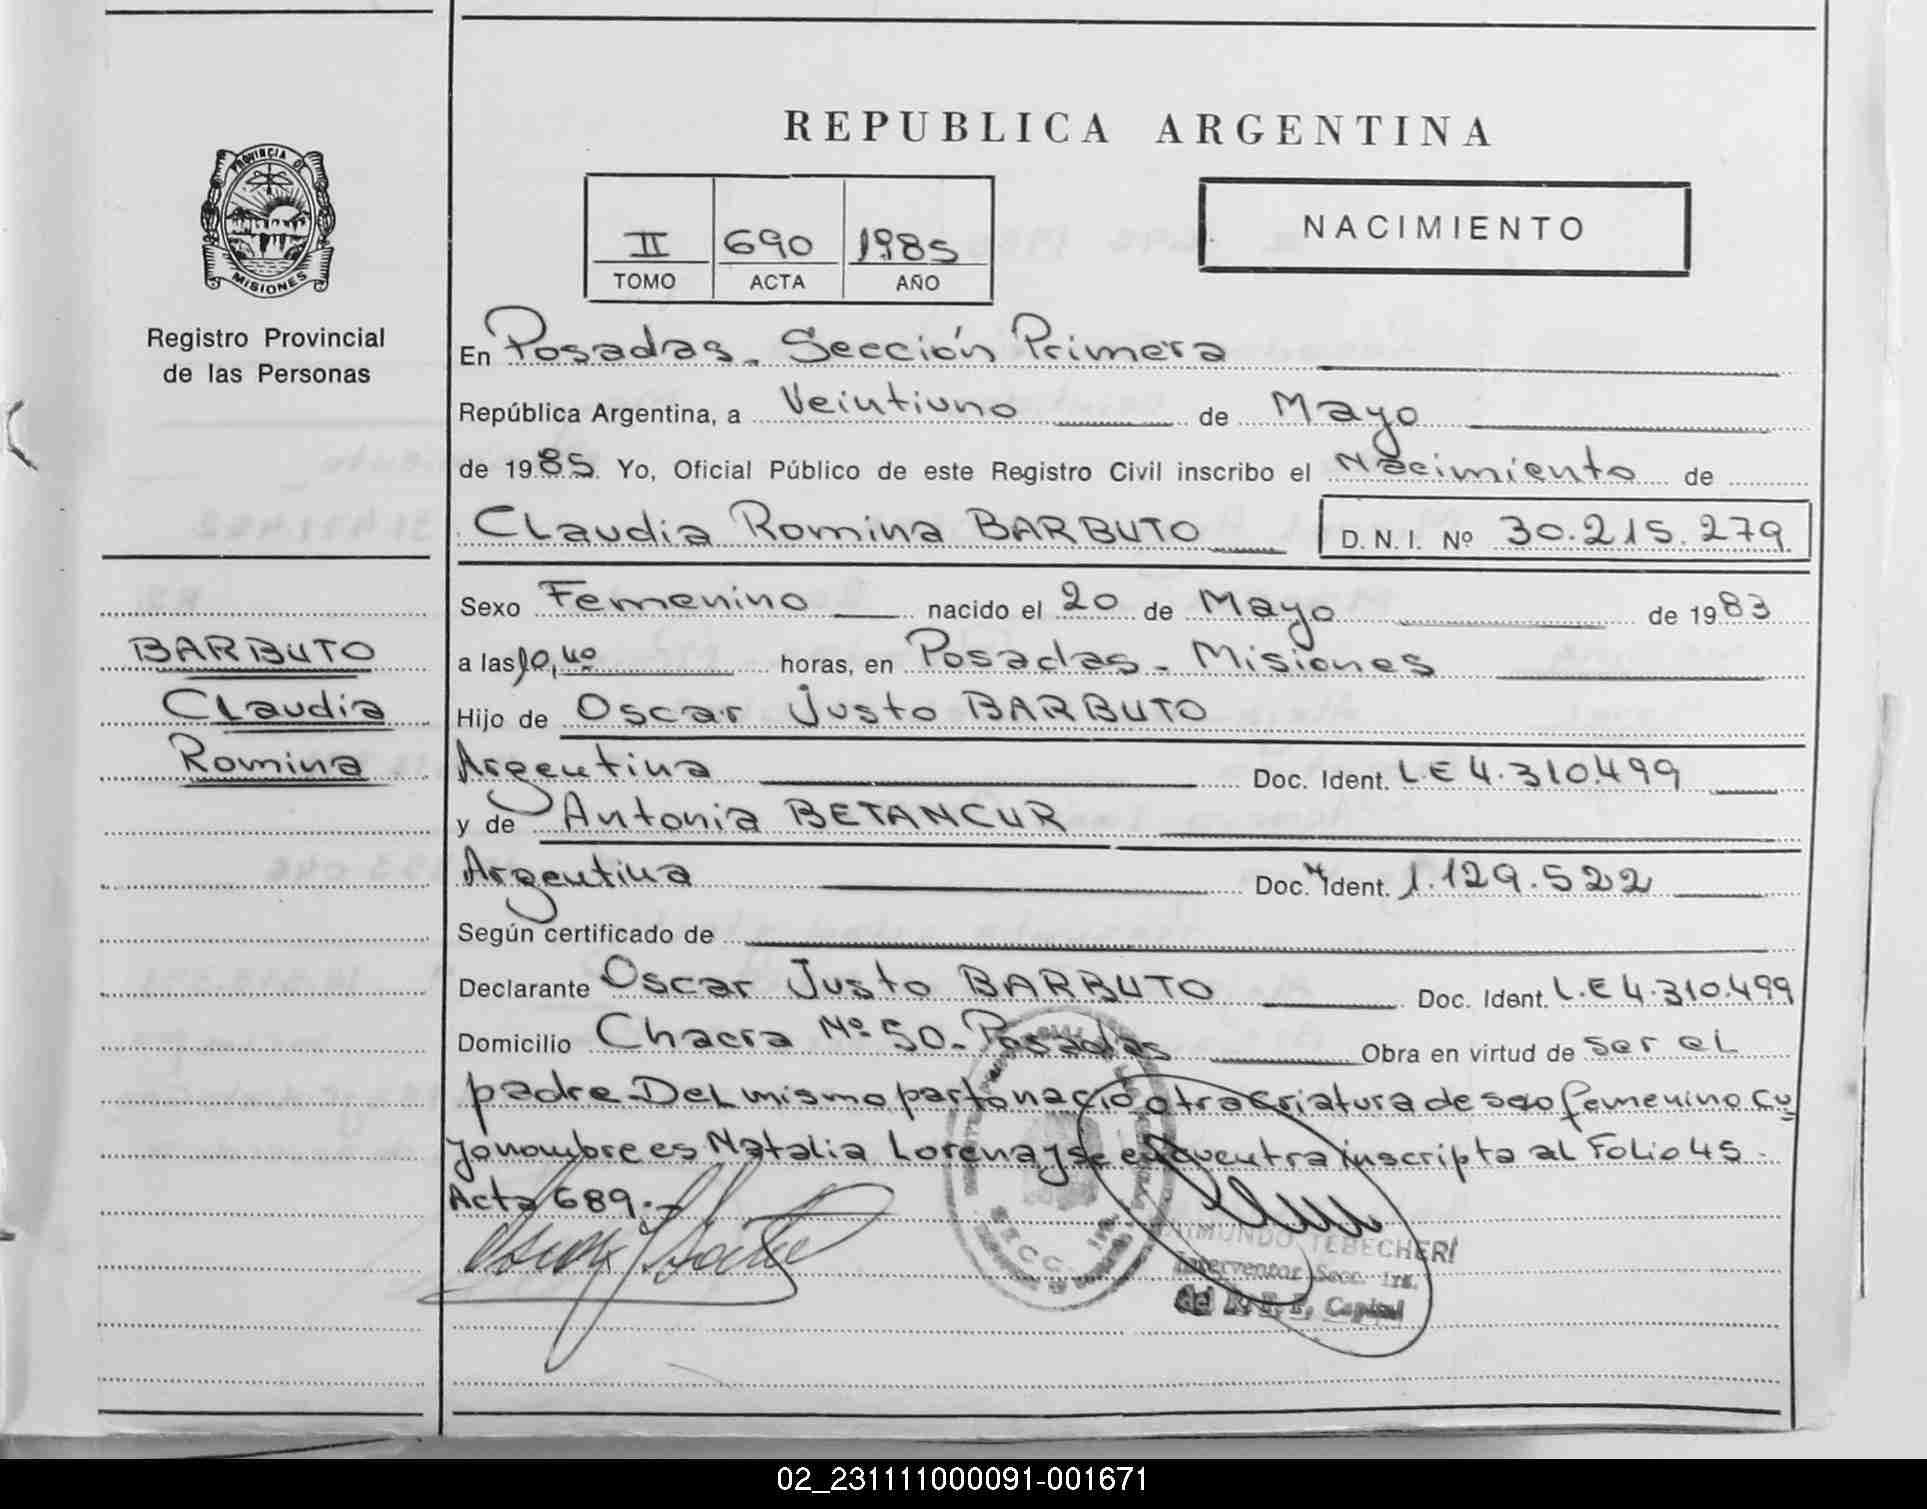 REPUBLICA ARGENTINA
PROVINCIA DE
MISIONES
Registro Provincial
de las Personas
II 690 1985
TOMO ACTA AÑO
NACIMIENTO
En Posadas. Sección Primera
República Argentina, a Veintiuno de Mayo
de 1985. Yo, Oficial Público de este Registro Civil inscribo el Nacimiento de
Claudia Romina BARBUTO D. N. I. Nº 30.215.279
BARBUTO
Claudia
Romina
Sexo Femenino nacido el 20 de Mayo de 1983
a las 10,40 horas, en Posadas - Misiones
Hijo de Oscar Justo BARBUTO
Argentina Doc. Ident. L.E 4.310.499
y de Antonia BETANCUR
Argentina Doc. Ident. 1.129.522
Según certificado de
Declarante Oscar Justo BARBUTO Doc. Ident. L.E 4.310.499
Domicilio Chacra Nº 50. Posadas Obra en virtud de ser el
padre. Del mismo parto nació otra criatura de sexo femenino cu
yo nombre es Natalia Lorena y se encuentra inscripta al Folio 45.
Acta 689.-
SECC. 1ra.
RAIMUNDO TEBECHERI
Interventor Secc. 1ra.
del R. P. P. Capital
02_231111000091-001671